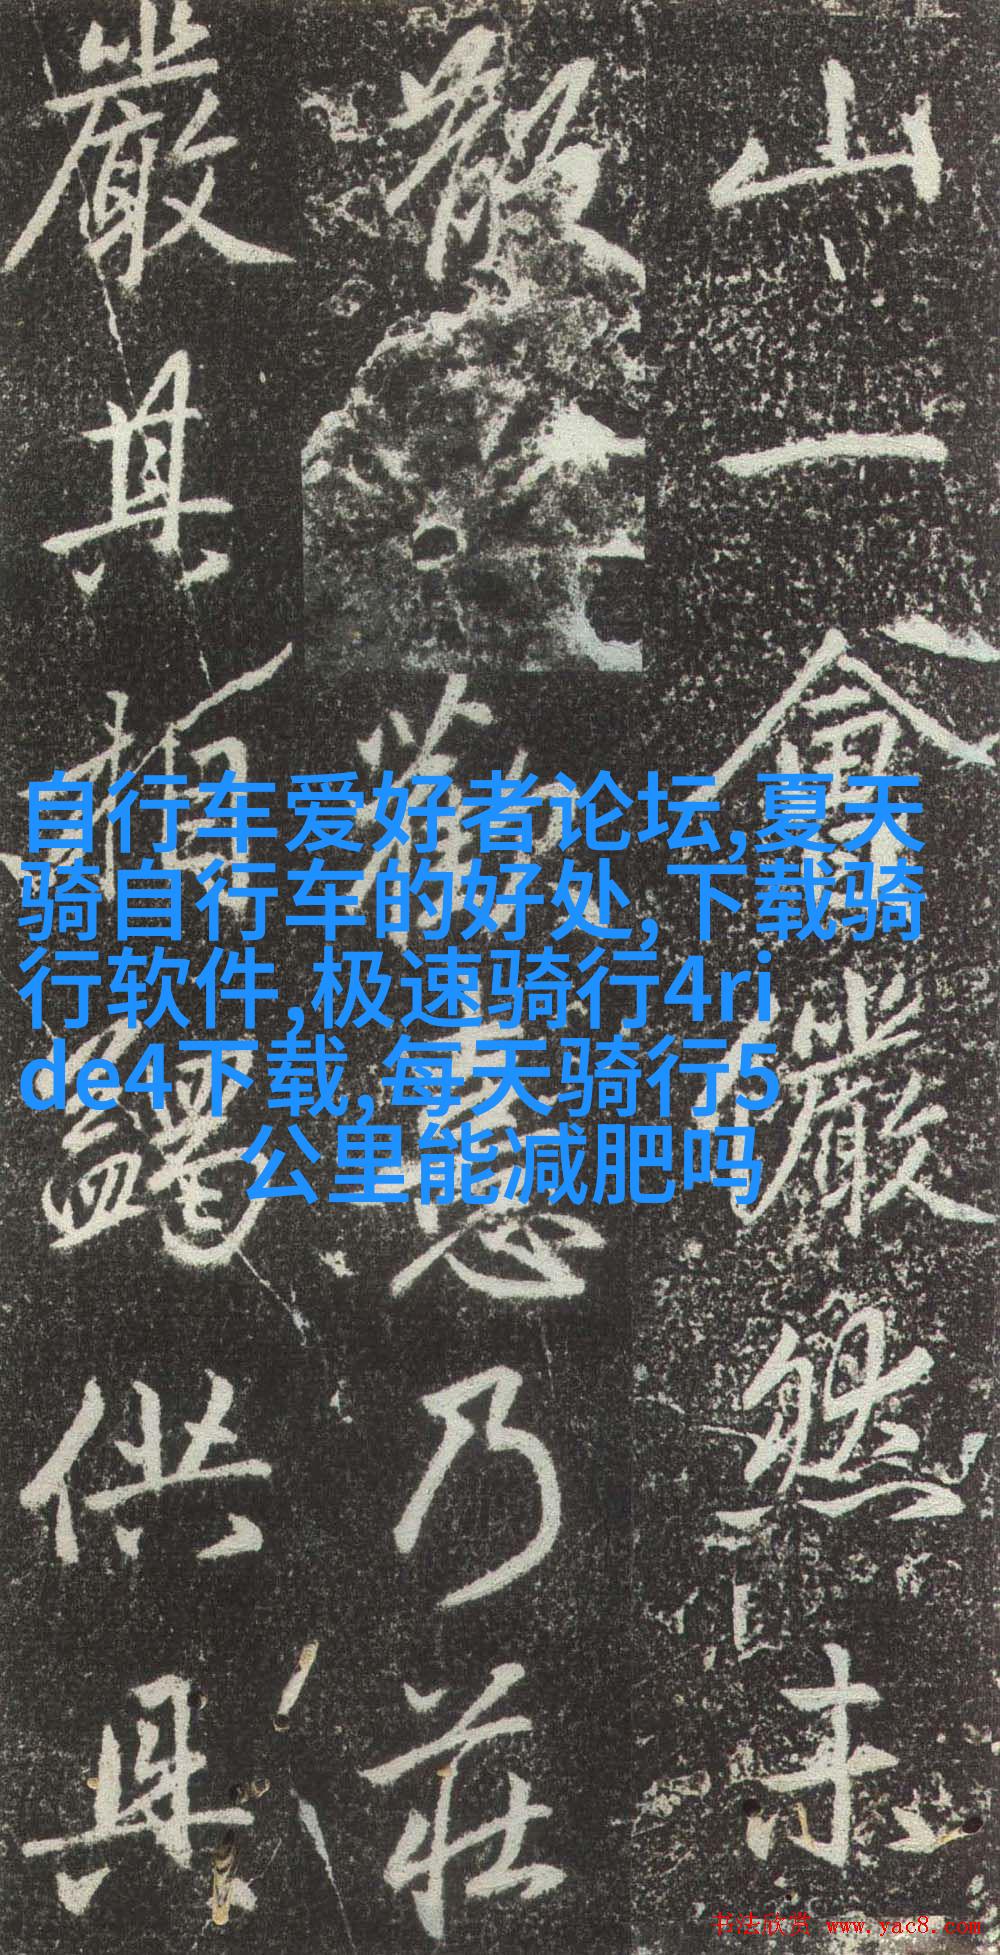 山一會嚴然未
散觀意乃莊
嚴其相供具
自行车爱好者论坛,夏天
骑自行车的好处,下载骑
行软件,极速骑行4ri
de4下载,每天骑行5
公里能减肥吗
书法欣赏 www.yac8.com